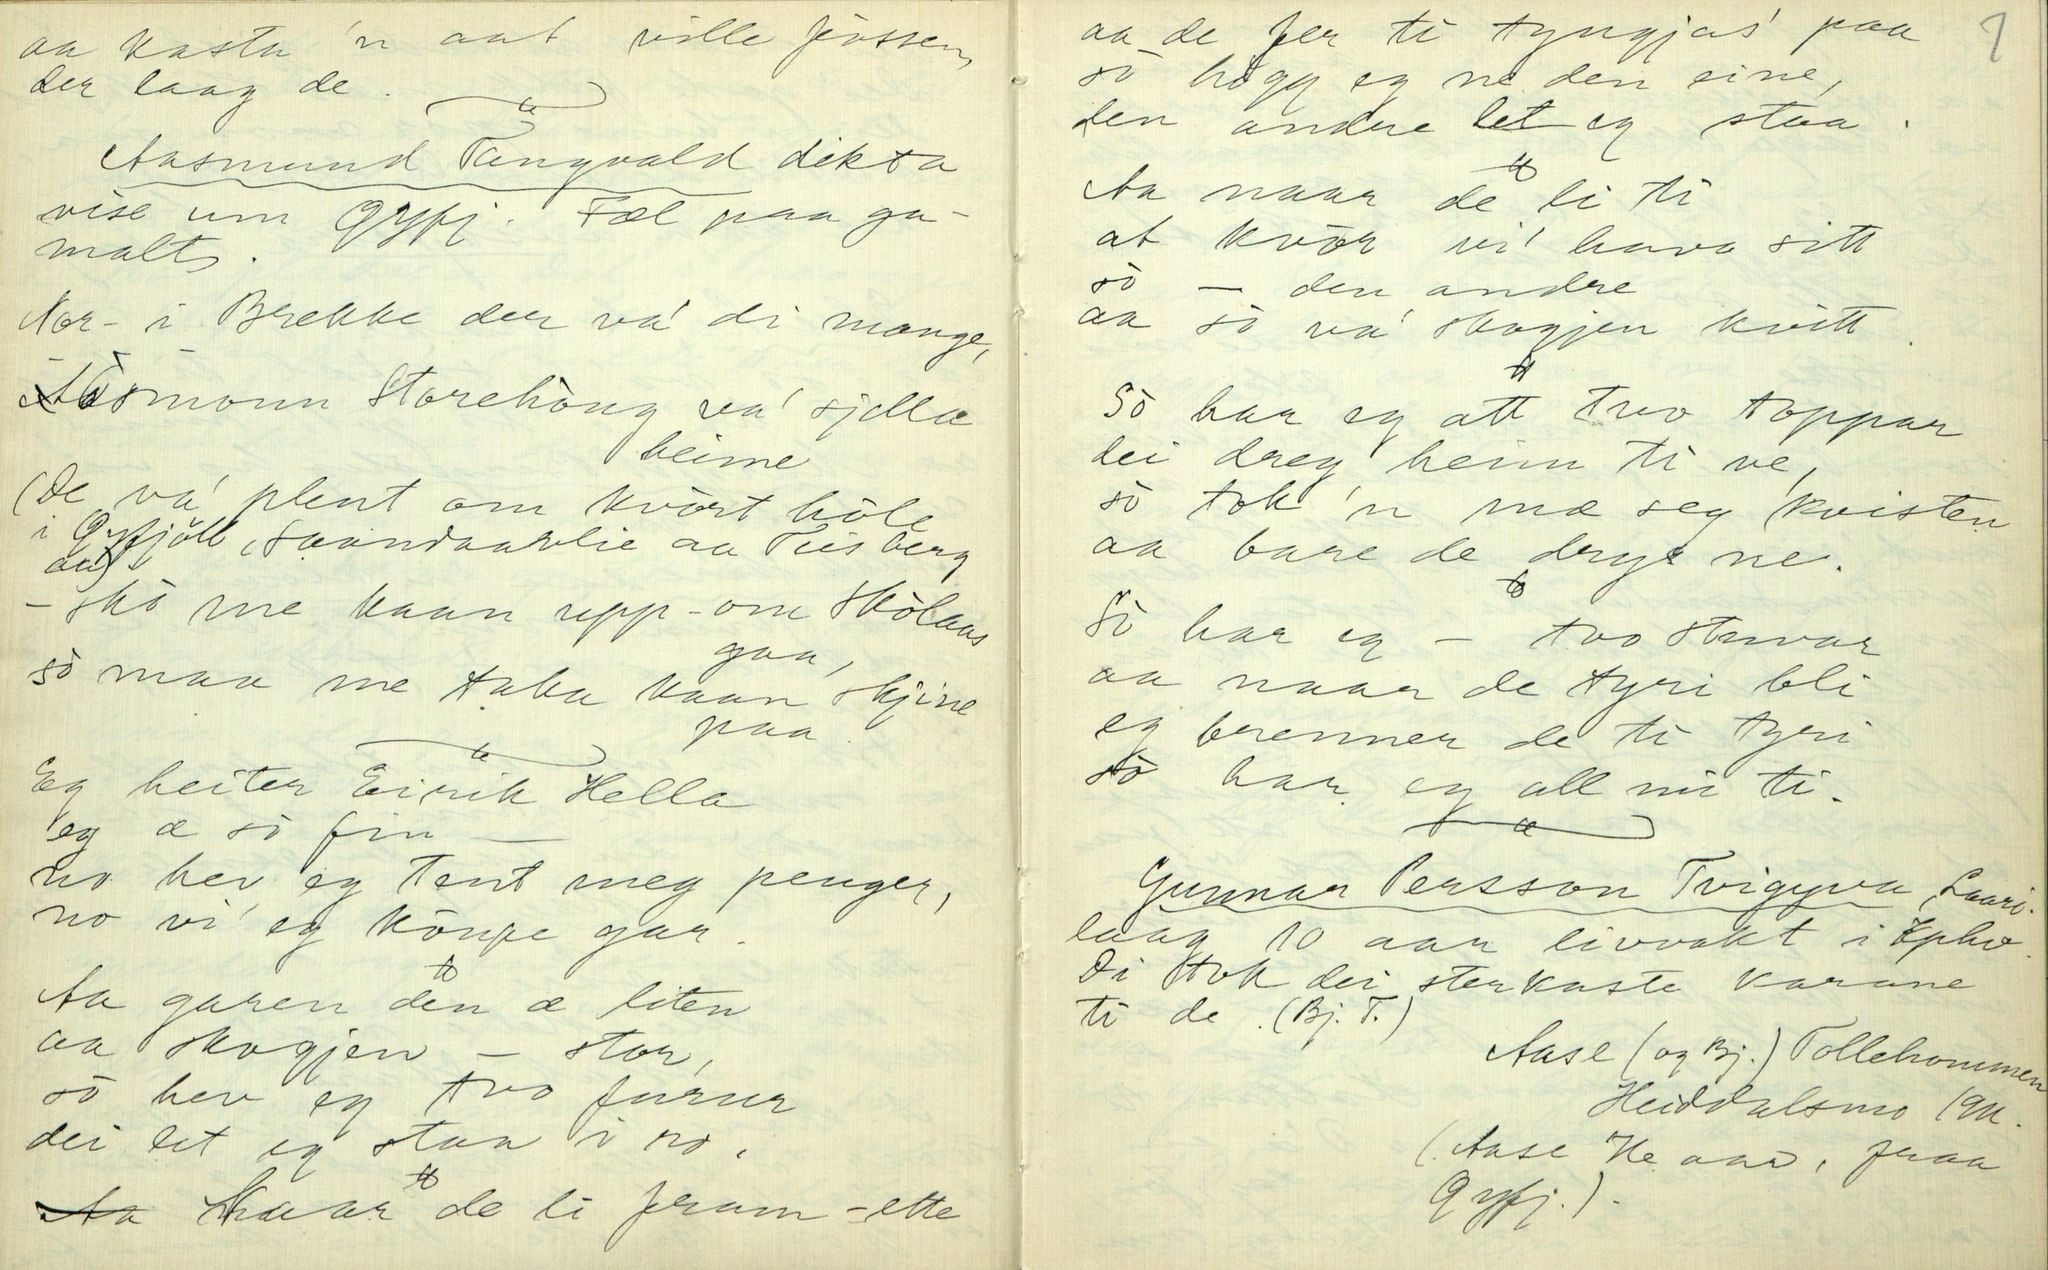 aa kasta 'n aat ville fossen,
der laag de.
Aasmund Tangvald dikta
vise um Gryfj. Fæl paa ga-
malts.
Nor- i Brekke der va' di mange,
Åsmonn Storehaug va' sjella
heime
(De va' plent om kvòrt hòle
i Gryfjöll, Saandaarlie aa Tiisberg
aa)
- skò me kaan upp-om Skòlaas
gaa,
sò maa me taka kaan skjine
paa
Eg heiter Eirik Hella
eg æ sò fin —
no hev eg tent meg penger,
no vi' eg kòupe gar.
Aa garen den æ liten
aa skogjen — stor,
sò hev eg tvo furur
dei let eg staa i ro.
Naar de li fram-ette
aa de fer ti tyngjas' paa
sò högg eg ne den eine,
den andre let eg staa.
Aa naar de li ti
at kvòr vi' hava sitt
sò — den andre
aa sò va' skogjen kvitt.
Sò har eg att tvo toppar
dei dreg' heim ti ve,
sò tok 'n mæ seg kvisten
aa bare de dryge ne.
Sò har eg — tvo stuvar
aa naar de tyri bli
eg brenner de ti tyri
sò har eg all mi ti.
Gunnar Persson Tvigyva, Laari.
laag 10 aar livvakt i Kphv.
Di tok dei sterkaste karane
ti de. (Bj. T.)
Aase (og Bj.) Tollehommen
Heiddalsmo 1911.
(Aase He aar, fraa
Gryfj.).